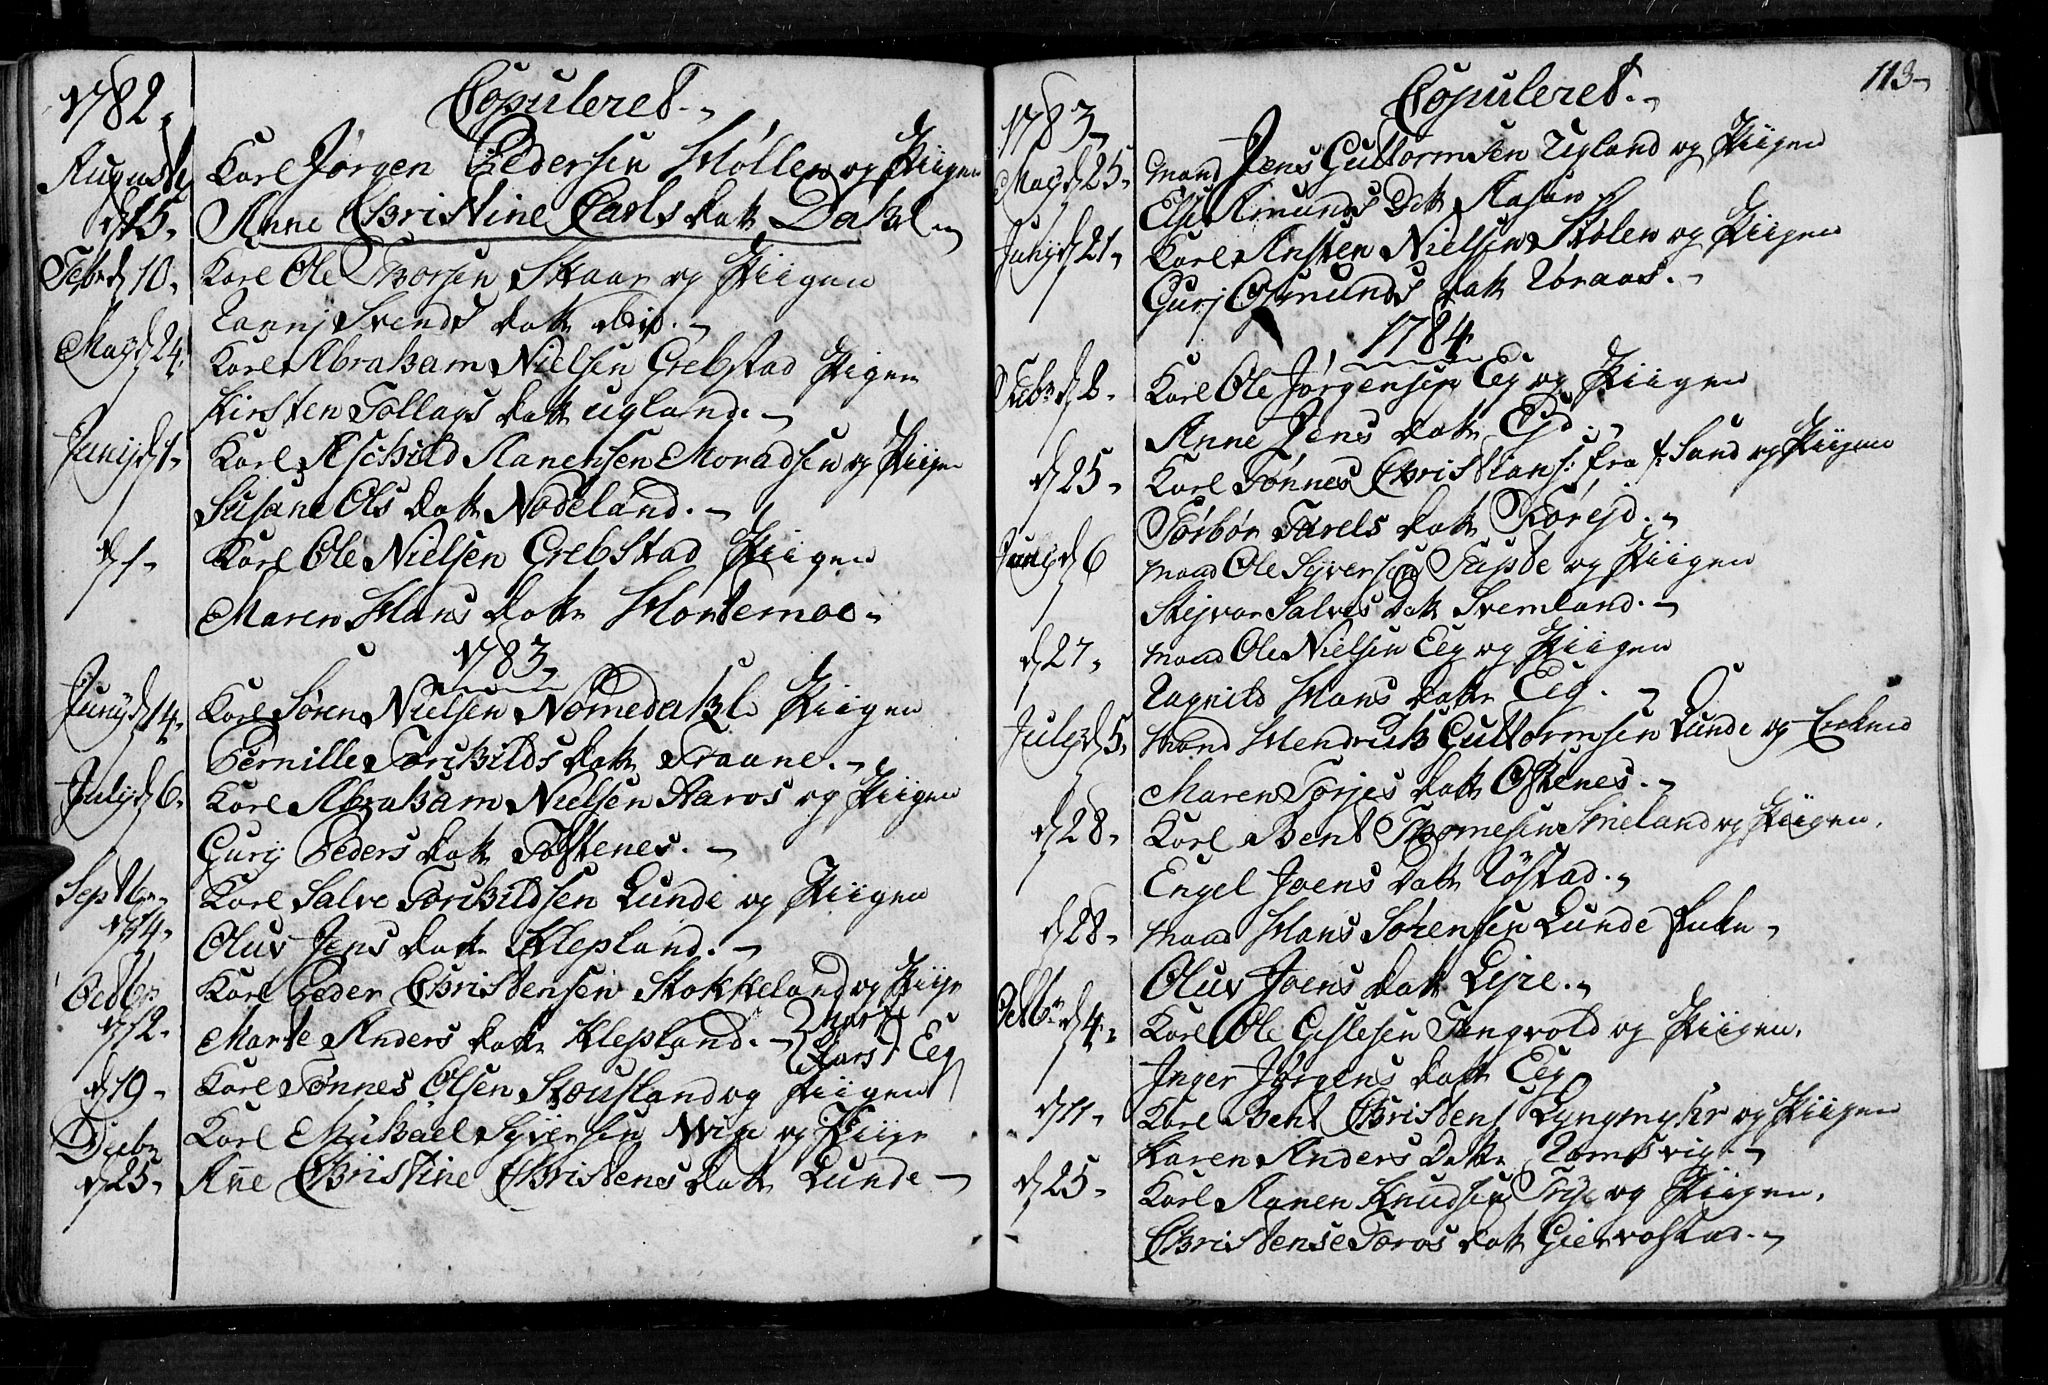 1782.
Copuleret.
Augusty Karl Jørgen Pedersen Møllen og Piigen
d 15. Anne Christine Carls datr Dahl
Febr d 10. Karl Ole Thorsen Skaar og Piigen
Svends datr
May d 24. Karl Abraham Nielsen Grebstad Pigen
Kirsten Tollags datr Ugland.
Juny d 1. Karl Aschild Aanensen Moradsen og Piigen
Susane Ols datr Nodeland.
d 1. Karl Ole Nielsen Grebstad Piigen
Maren Hans datr Hortemoe.
1783.
Juny d 14. Karl Søren Nielsen Nomedahl Piigen
Pernille Torkilds datr Fraane.
July d 6. Karl Abraham Nielsen Aaros og Piigen
Gurij Peders datr Tostenes.
Septbr Karl Salve Torkildsen Lunde og Piigen
d 14. Oluv Jens datr Klepland.
Octbr Karl Peder Christensen Stokkeland og Piign
d 12. Marte Anders datr Klepland. Marte
Lars d Eeg
d 19. Karl Tønnes Olsen Stousland og Piigen
Decbr Karl Mikael Syversen Wige og Piign
d 25. Añe Christine Christens datr Lunde
113
Copuleret.
1783
May d 25. mand Jens Guttormsen Ugland og Piigen
Else Amunds Dtr
Juny d 21. Karl Ansten Nielsen Stølen og Piigen
Gurj Osmunds datr Ubraas.
1784
Febr d 2. Karl Ole Jørgensen Eeg og Piigen
Anne Jens datr Ejd.
d 25. Karl Tønnes Christians: fra Sand og Piigen
Torbør Tarels datr
Juny d 6 mand Ole Syversen og Piigen
Salves Datr
d 27. mand Ole Nielsen Eeg og Piigen
Ragnild Hans datr Eeg.
July d 5. mand Hendrik Guttormsen Lunde og Enken
Maren Torjes datr Ostenes.
d 28. Karl Bent Thomesen og Piigen.
Engel Joens datr Røstad.
d 28. mand Hans Sørensen Lunde Enken
Oluv Joens datr Lejre.
Octbr d 4. Karl Ole Gislesen Tengvold og Piigen.
Inger Jørgens datr Eeg
d 11. Karl Bent Christens Lyngmyhr og Piigen
Karen Anders datr Romsvig.
d 25. Karl Aanen Knudsen og Piigen.
Christense Toros datr Giervolstad.